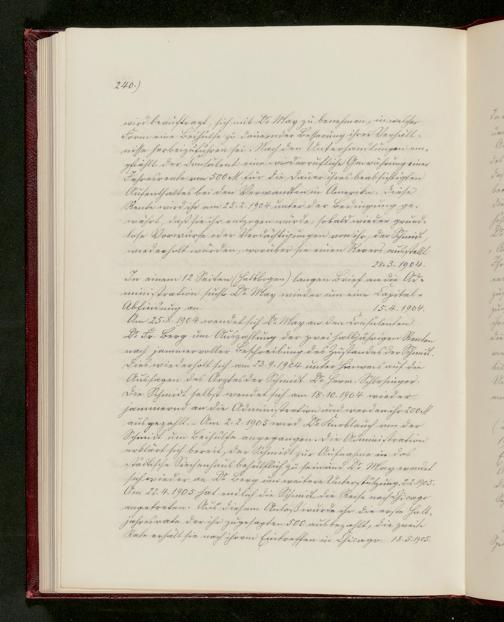 240.)
wird beauftragt, sich mit Dr May zu benehmen, in welcher
Form eine Beihülfe zu dauernder Besserung ihrer Verhält-
nisse herbeizuführen sei. Nach den Unterhandlungen em-
pfiehlt der Consulent eine widerrufliche Gewährung einer
Jahresrente von 500 M für die Dauer ihres beabsichtigten
Aufenthaltes bei den Verwandten in Amerika. Diese
Rente wird ihr am 22.2.1904 unter der Bedingung ge-
währt, daß sie ihr entzogen würde, sobald wieder grund-
lose Vorwürfe oder Verdächtigungen von ihr, der Schmidt,
wiederholt würden, worüber sie einen Revers ausstellt
28.3.1904.
In einem 12 Seiten langen Brief an die Ad-
ministration sucht Dr May wieder um eine Capital-
Abfindung an 15.4.1904.
Am 25. 1904 wendet sich Dr May an den Consulenten
Dr Fr. Berg um Auszahlung der zwei halbjährigen Renten
nach jammervoller Beschreibung des Zustandes der Schmidt.
Dies wiederholt sich am 23.9.1904 unter Hinweis auf die
Aussagen des Arztes der Schmidt Dr Herm. Schlesinger.
Die Schmidt selbst wendet sich am 18.10.1904 wieder
jammernd an die Administration und werden ihr 200 M
ausgezahlt. – Am 2.2.1905 wird Dr Knoblauch von der
Schmidt um Beihülfe angegangen. Die Administration
erklärt sich bereit, der Schmidt zur Aufnahme in das
städtische Siechenhaus behülflich zu sein und Dr May wendet
sich wieder an Dr Berg um weitere Unterstützung
Am 22.4.1905 hat endlich die Schmidt die Reise nach Chicago
angetreten. Aus diesem Anlaß wurde ihr die erste Halb-
jahresrate der ihr zugesagten 500 ausbezahlt, die zweite
Rate erhält sie nach ihrem Eintreffen in Chicago 18.5.1905.